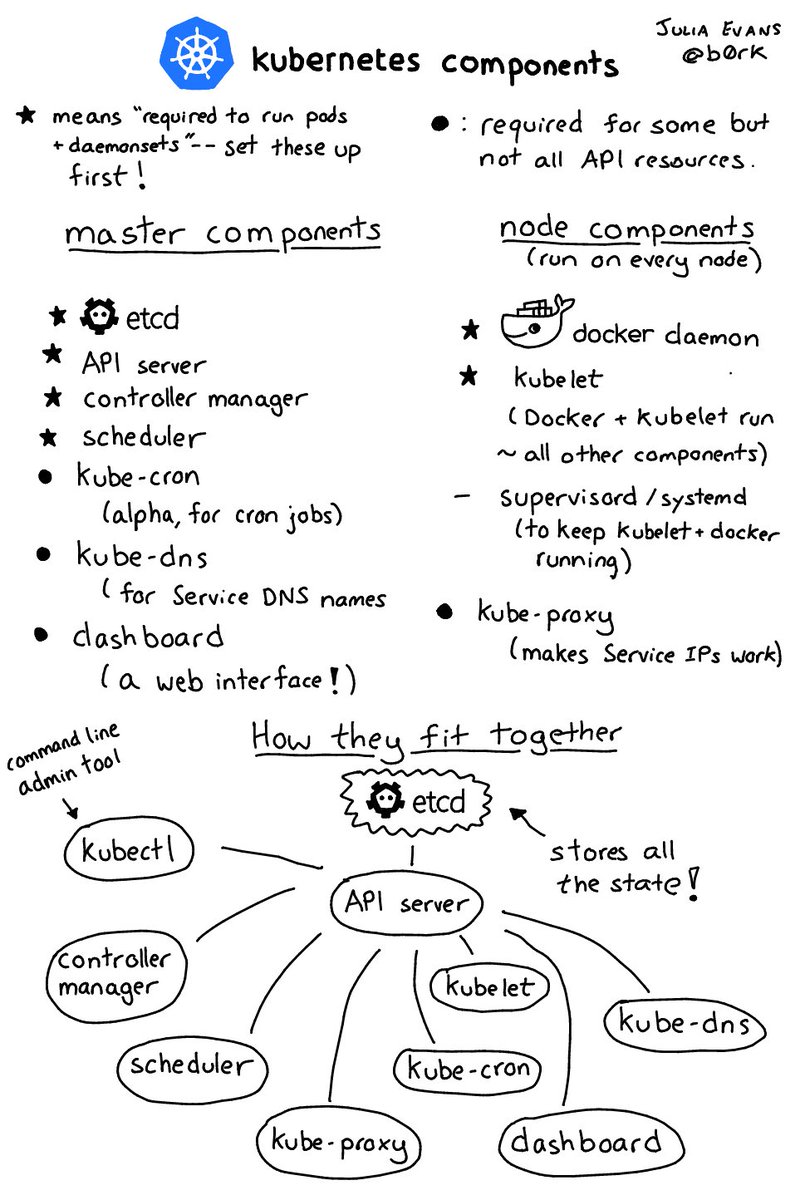 kubernetes components
JULIA EVANS
@b0rk
★ means "required to run pods
+ daemonsets" -- set these up
first!
● : required for some but
not all API resources.
master components
★ etcd
★ API server
★ controller manager
★ scheduler
● kube-cron
(alpha, for cron jobs)
● kube-dns
(for Service DNS names
● dashboard
(a web interface!)
node components
(run on every node)
★ docker daemon
★ kubelet
(Docker + kubelet run
~ all other components)
- supervisord/systemd
(to keep kubelet + docker
running)
● kube-proxy
(makes Service IPs work)
How they fit together
command line
admin tool
etcd
stores all
the state!
kubectl
API server
controller
manager
kubelet
kube-dns
scheduler
kube-cron
kube-proxy
dashboard